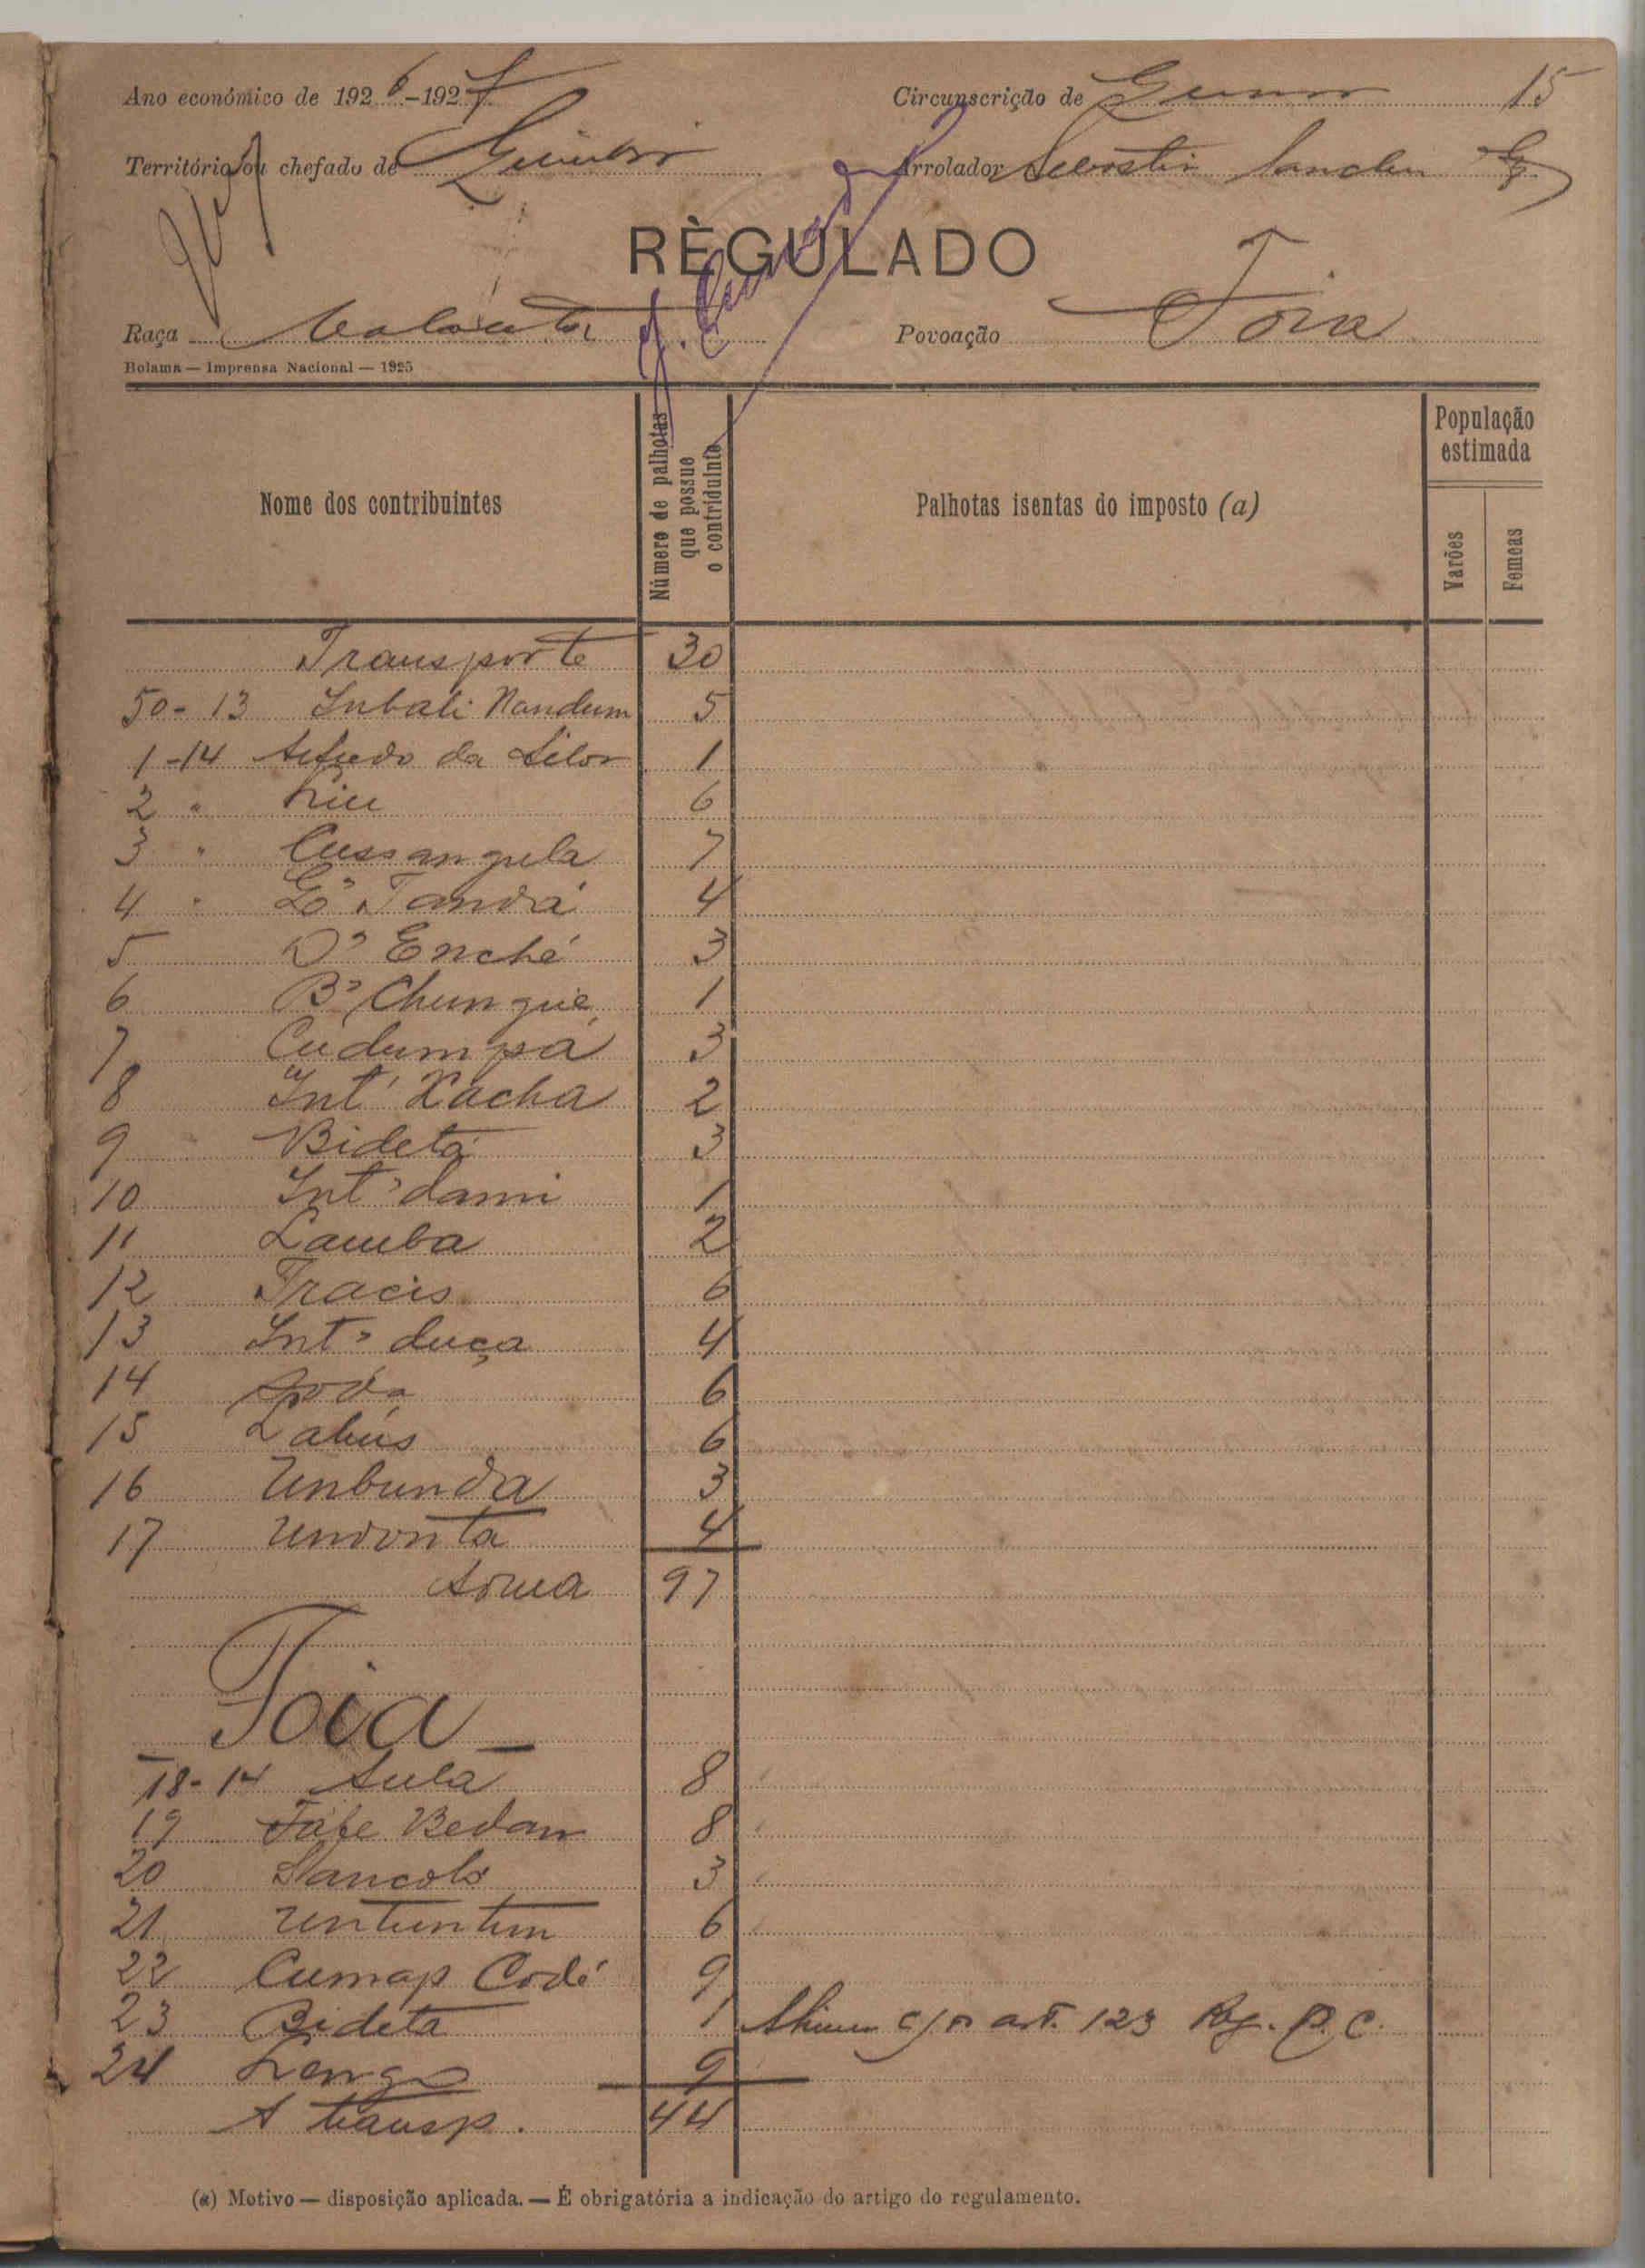 Ano económico de 1926-1927
Circunscrição de 15
Território ou chefado de
Arrolador
RÈGULADO
Raça Balanta
Povoação Toia
Bolama — Imprensa Nacional — 1925
Nome dos contribuintes
Número de palhotas que possue o contriduinte
Palhotas isentas do imposto (a)
População estimada
Varões
Femeas
Transporte 30
50-13 Inbali Nandum 5
1-14 da Silva 1
2 " 6
3 " Cussangula 7
4 " Tandá 4
5 D° Enché 3
6 B° Chungué 1
7 Cudumpá 3
8 Int° Xacha 2
9 Bidetá 3
10 Int° dami 1
11 Lamba 2
12 Tracis 6
13 Int° duça 4
14 6
15 6
16 Unbunda 3
17 Undonta 4
Soma 97
Toia
18-14 Sula 8
19 Fafe Bedam 8
20 3
21 Untuntum 6
22 Cumap Codé 9
23 Bideta 1 art. 123 Reg. P. C.
24 9
A transp. 44
(a) Motivo — disposição aplicada. — É obrigatória a indicação do artigo do regulamento.